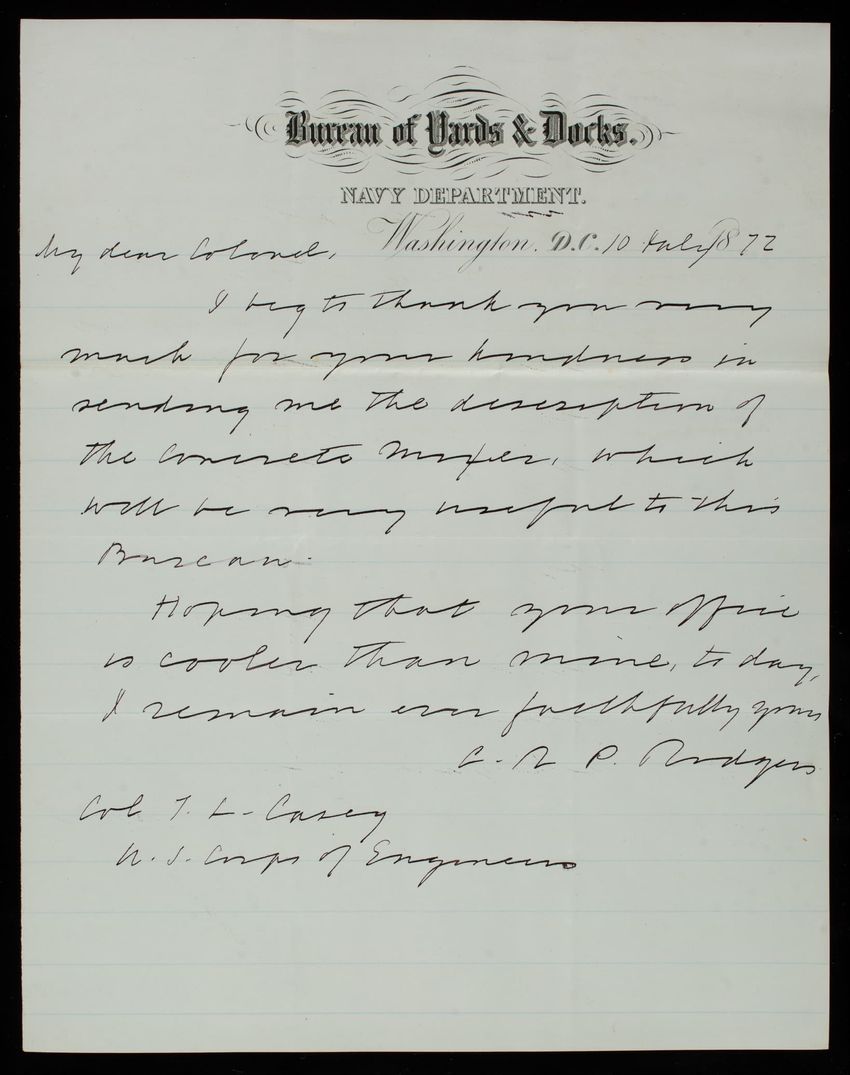 Bureau of Yards & Docks.
NAVY DEPARTMENT.
Washington, D.C. 10 July 1872
My dear Colonel,
I beg to thank you very
much for your kindness in
sending me the description of
the Concrete Mixer, which
will be very useful to this
Bureau.
Hoping that your office
is cooler than mine, to day,
I remain ever faithfully yours
C. R. P. Rodgers
Col T. L. Casey
U. S. Corps of Engineers